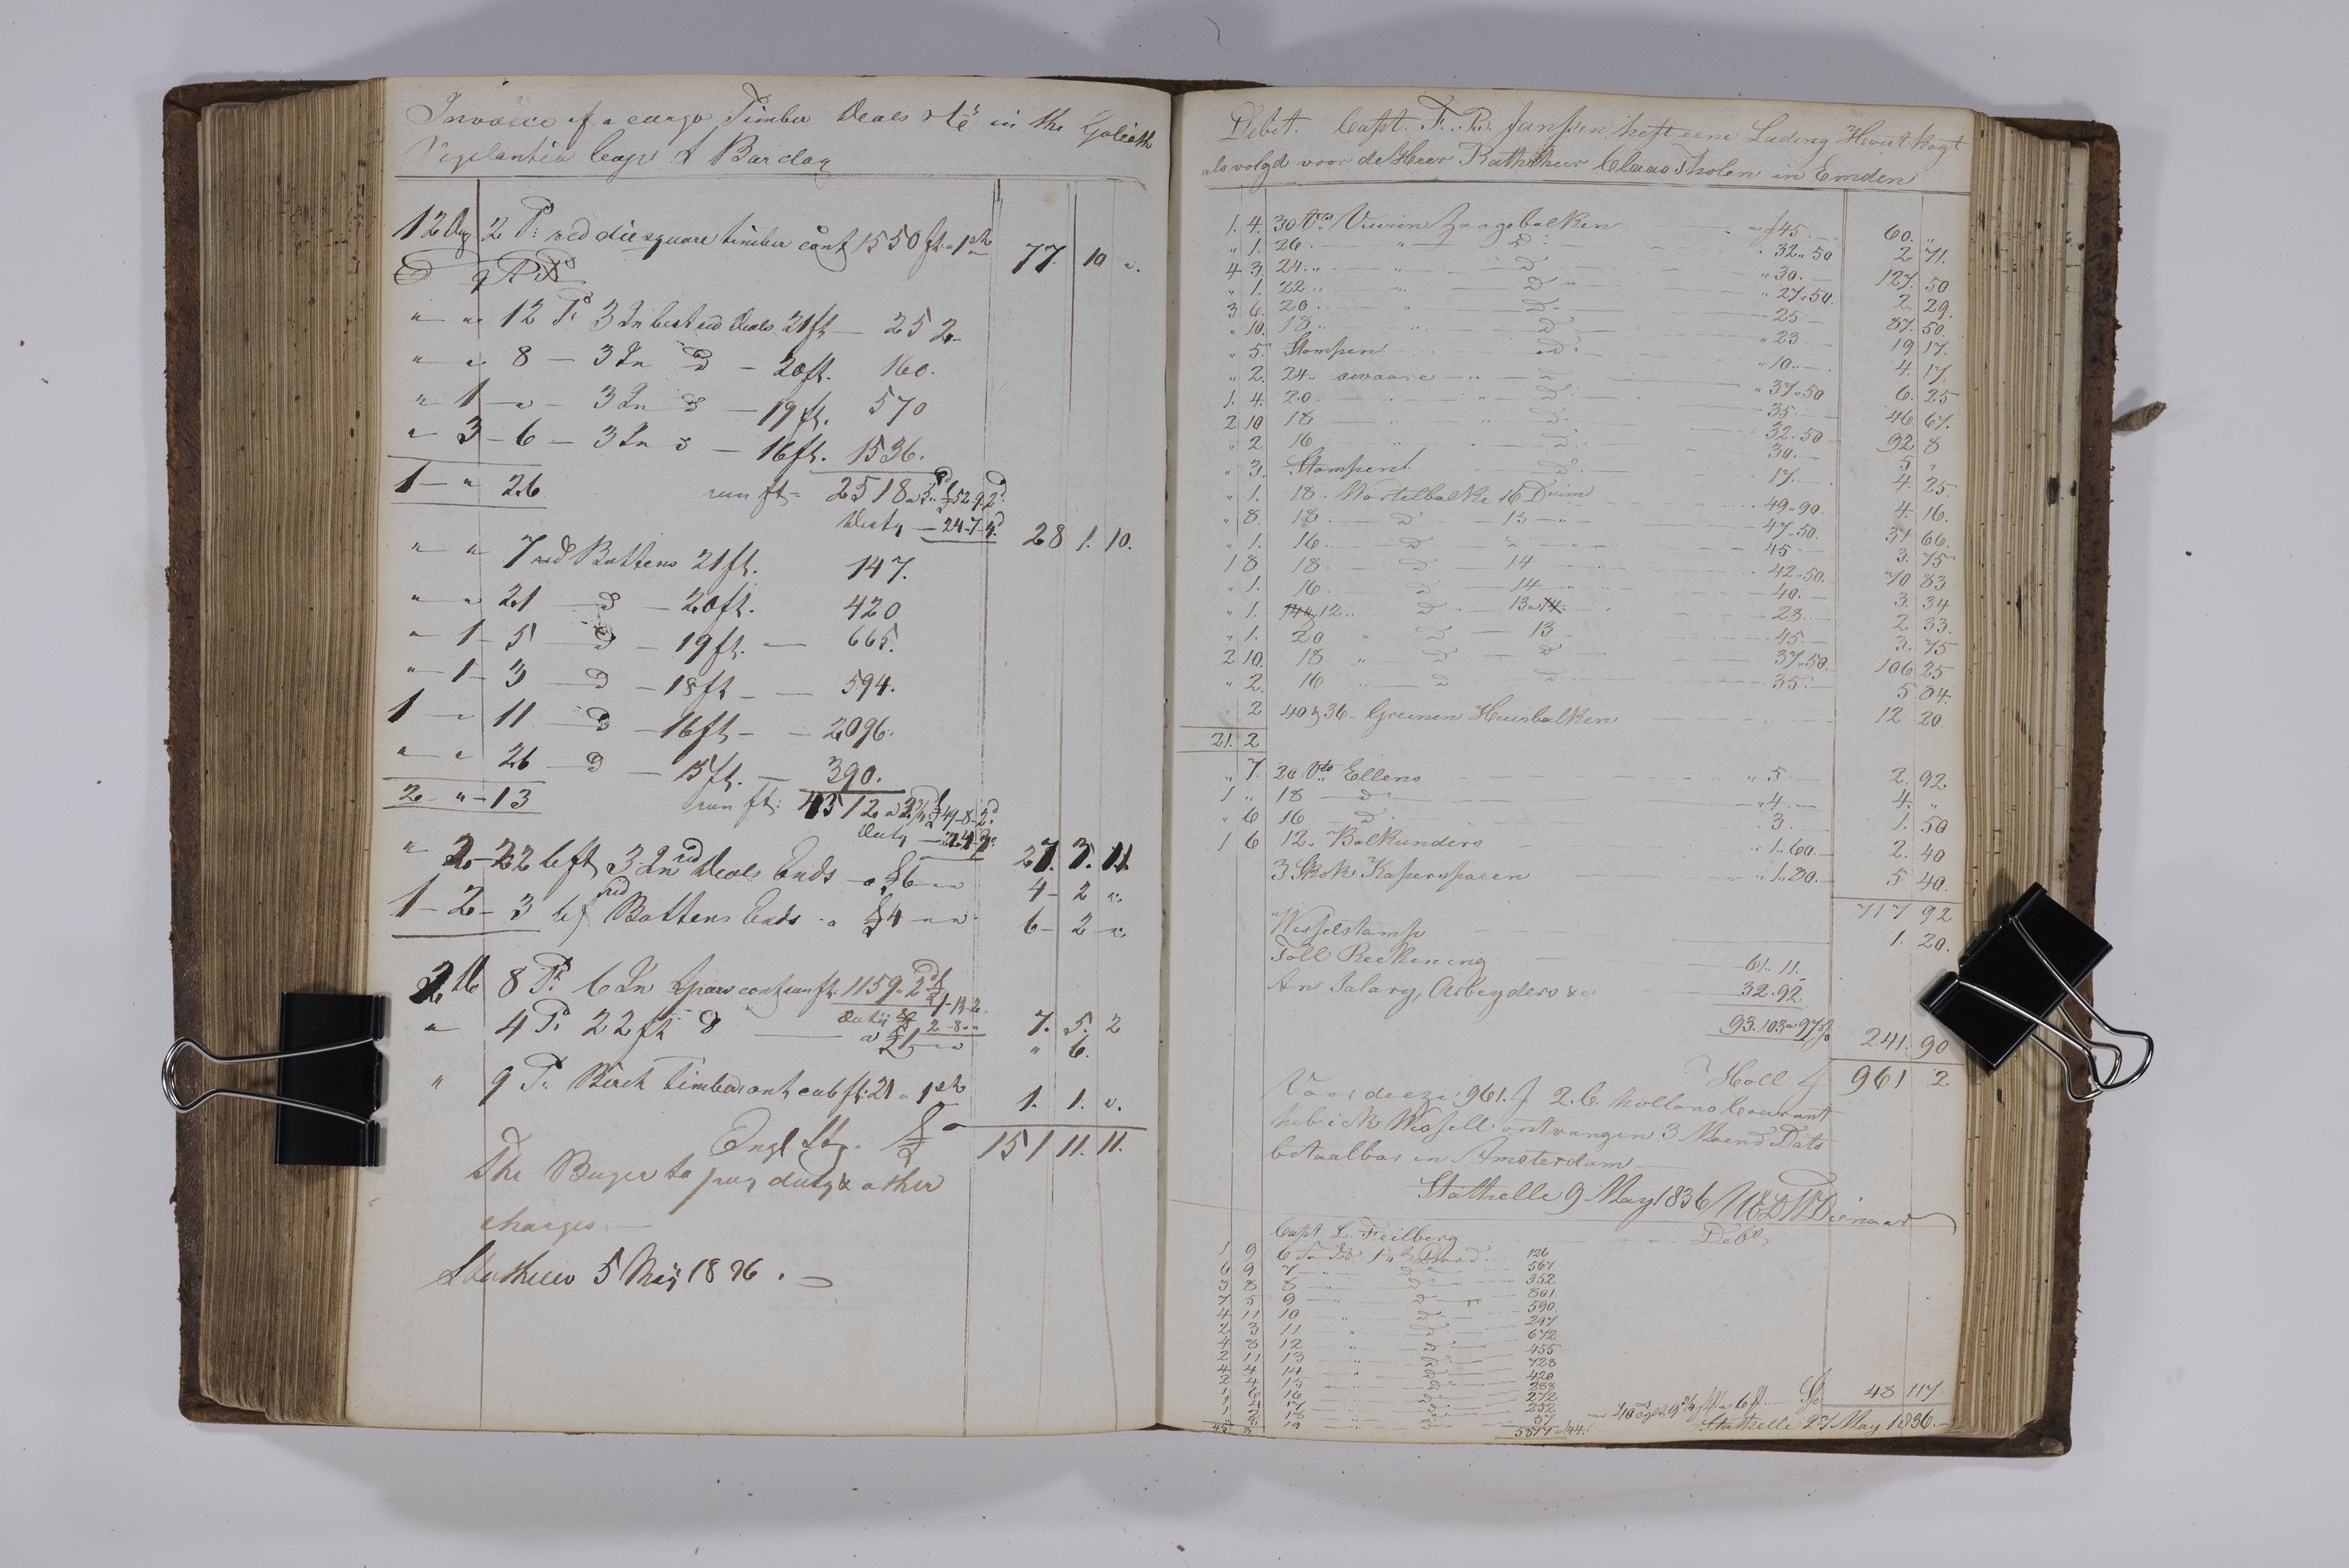 Invoice of a cargo Timber Deals &c in the Goliath
Vigilantia Capt Barclay
12 2 Ps red die square timber cont 1550 ft a 1sh 77. 10 "
" " 12 Ps 3 In best red Deals 21 ft — 252
" " 8 — 3 In D — 20 ft. 160.
" 1 — " — 3 In D — 19 ft. 570
" 3 — 6 — 3 In D — 16 ft. 1536.
1 — " 26 run ft = 2518 a £52-9-2
Duty — 24-7-4 28 1. 10.
" " 7 red Battens 21 ft. 147.
" " 21 — D — 20 ft. 420
" 1 — 5 — D — 19 ft. — 665.
" 1 — 3 — D — 18 ft — — 594.
1 — " 11 — D — 16 ft — — 2096.
" " 26 — D — 15 ft. — 390.
2 — " — 13 run ft: 4312 a £49-8-2
Duty 27. 3. 11.
" 2 — 22 6 ft 3 In red Deals Ends — a £6 — " 4 — 2 "
1 — 2 — 3 6 f red Battens Ends . a £4 — " — " 6 — 2 — "
8 Ps 6 In Spars cont run ft. 1159 a 2
Duty £ 2-8-" 7. 5. 2
" 4 Ps 22 ft D a £1 — " " 6.
" 9 Ps Birch timber cont cub ft: 21 a 1sh 1. 1. "
Engl Stg. £ 151 11. 11.
The Buyer to pay duty & other
charges —
5 May 1836. —
Debet. Capt. F. R. Janssen, heft eene Lading Hout kogt
als volgd voor de Heer Rathsheer Claas Tholen in Emden
1. 4. 30 Vt Vuiren Zaagebalken " f 45 — 60. "
" 1. 26 " D " 32.. 50 2 71.
4 3. 24 .. " D " 30. — 127. 50
" 1. 22 .. " D " 27.. 50. 2. 29.
3 6. 20 .. " D — 25 — 87. 50.
" 10. 18 .. " D " 23 19 17.
" 5. Stompen D " 10 .. — 4. 17.
" 2. 24 .. swaare — " — D " 37.. 50 6. 25
1. 4. 20 . " D — 35. — 46. 67.
2 10 18 " D 32. 50 92 8
" 2. 16 " D 30. — 5 "
" 3. Stompen D 17. — 4. 25.
" 1. 18. Wortelbalke 16 Duim 49.. 90. 4. 16.
" 8. 18. — D — 15 — " 47.. 50. 31 66.
" 1. 16 .. — D — D " 45 — 3. 75
1 8 18. — D — 14 " 42.. 50. 70 83
" 1. 16. D — 14 " 40. — 3. 34
" 1. 12 .. D — 13 a — 28. — 2 33.
" 1. 20 " D — 13 45. — 3. 75
2 10. 18 " D D 37.. 50. — 106 25
" 2. 16 .. — D D — 35. — 5 84.
" 2 40 & 36 .. Greinen Huisbalken 12 20.
21. 2
" 7. 20 Vts Ellens " 5 — 2. 92.
1 " 18 — D — " 4. — 4. "
" 6 16 — D . 3. — 1. 50
1 6 12. Balkunders .. 1.. 60. — 2. 40
3 Skok Kapersparen " 1.. 80. — 5 40.
717 92
Wisselstamp 1. 20.
Toll Reekening — 61. 11.
An Salary, Arbeyders &c — 32. 92
93. 103 a 97 241. 90
Holl f 961 2
Voor deeze 961. f 2. C. hollans Courant
heb ik Wissell ontvangen 3 Maend Dato
betaalbar in Amsterdam —
Stathelle 9 May 1836
Capt L. Feilberg — Debt,
1 9 6 126
6 9 7 — " D — 567
3 8 8 — " D — 352
7 5 9 — " D — 801
4 11 10 — " D — 590
2 3 11 " D — 297
4 8 12 — " D — 672
2 11 13 — " D — 455
4 4 14 — " D — 728
2 4 15 — " D — 420
1 6 16 — " D — 288
1 4 17 — " D — 272
1 2 18 — " D — 252
" 3 19 — " D — 57
45 3 5877 a 44 48 117
Stathelle 27 May 1836. —